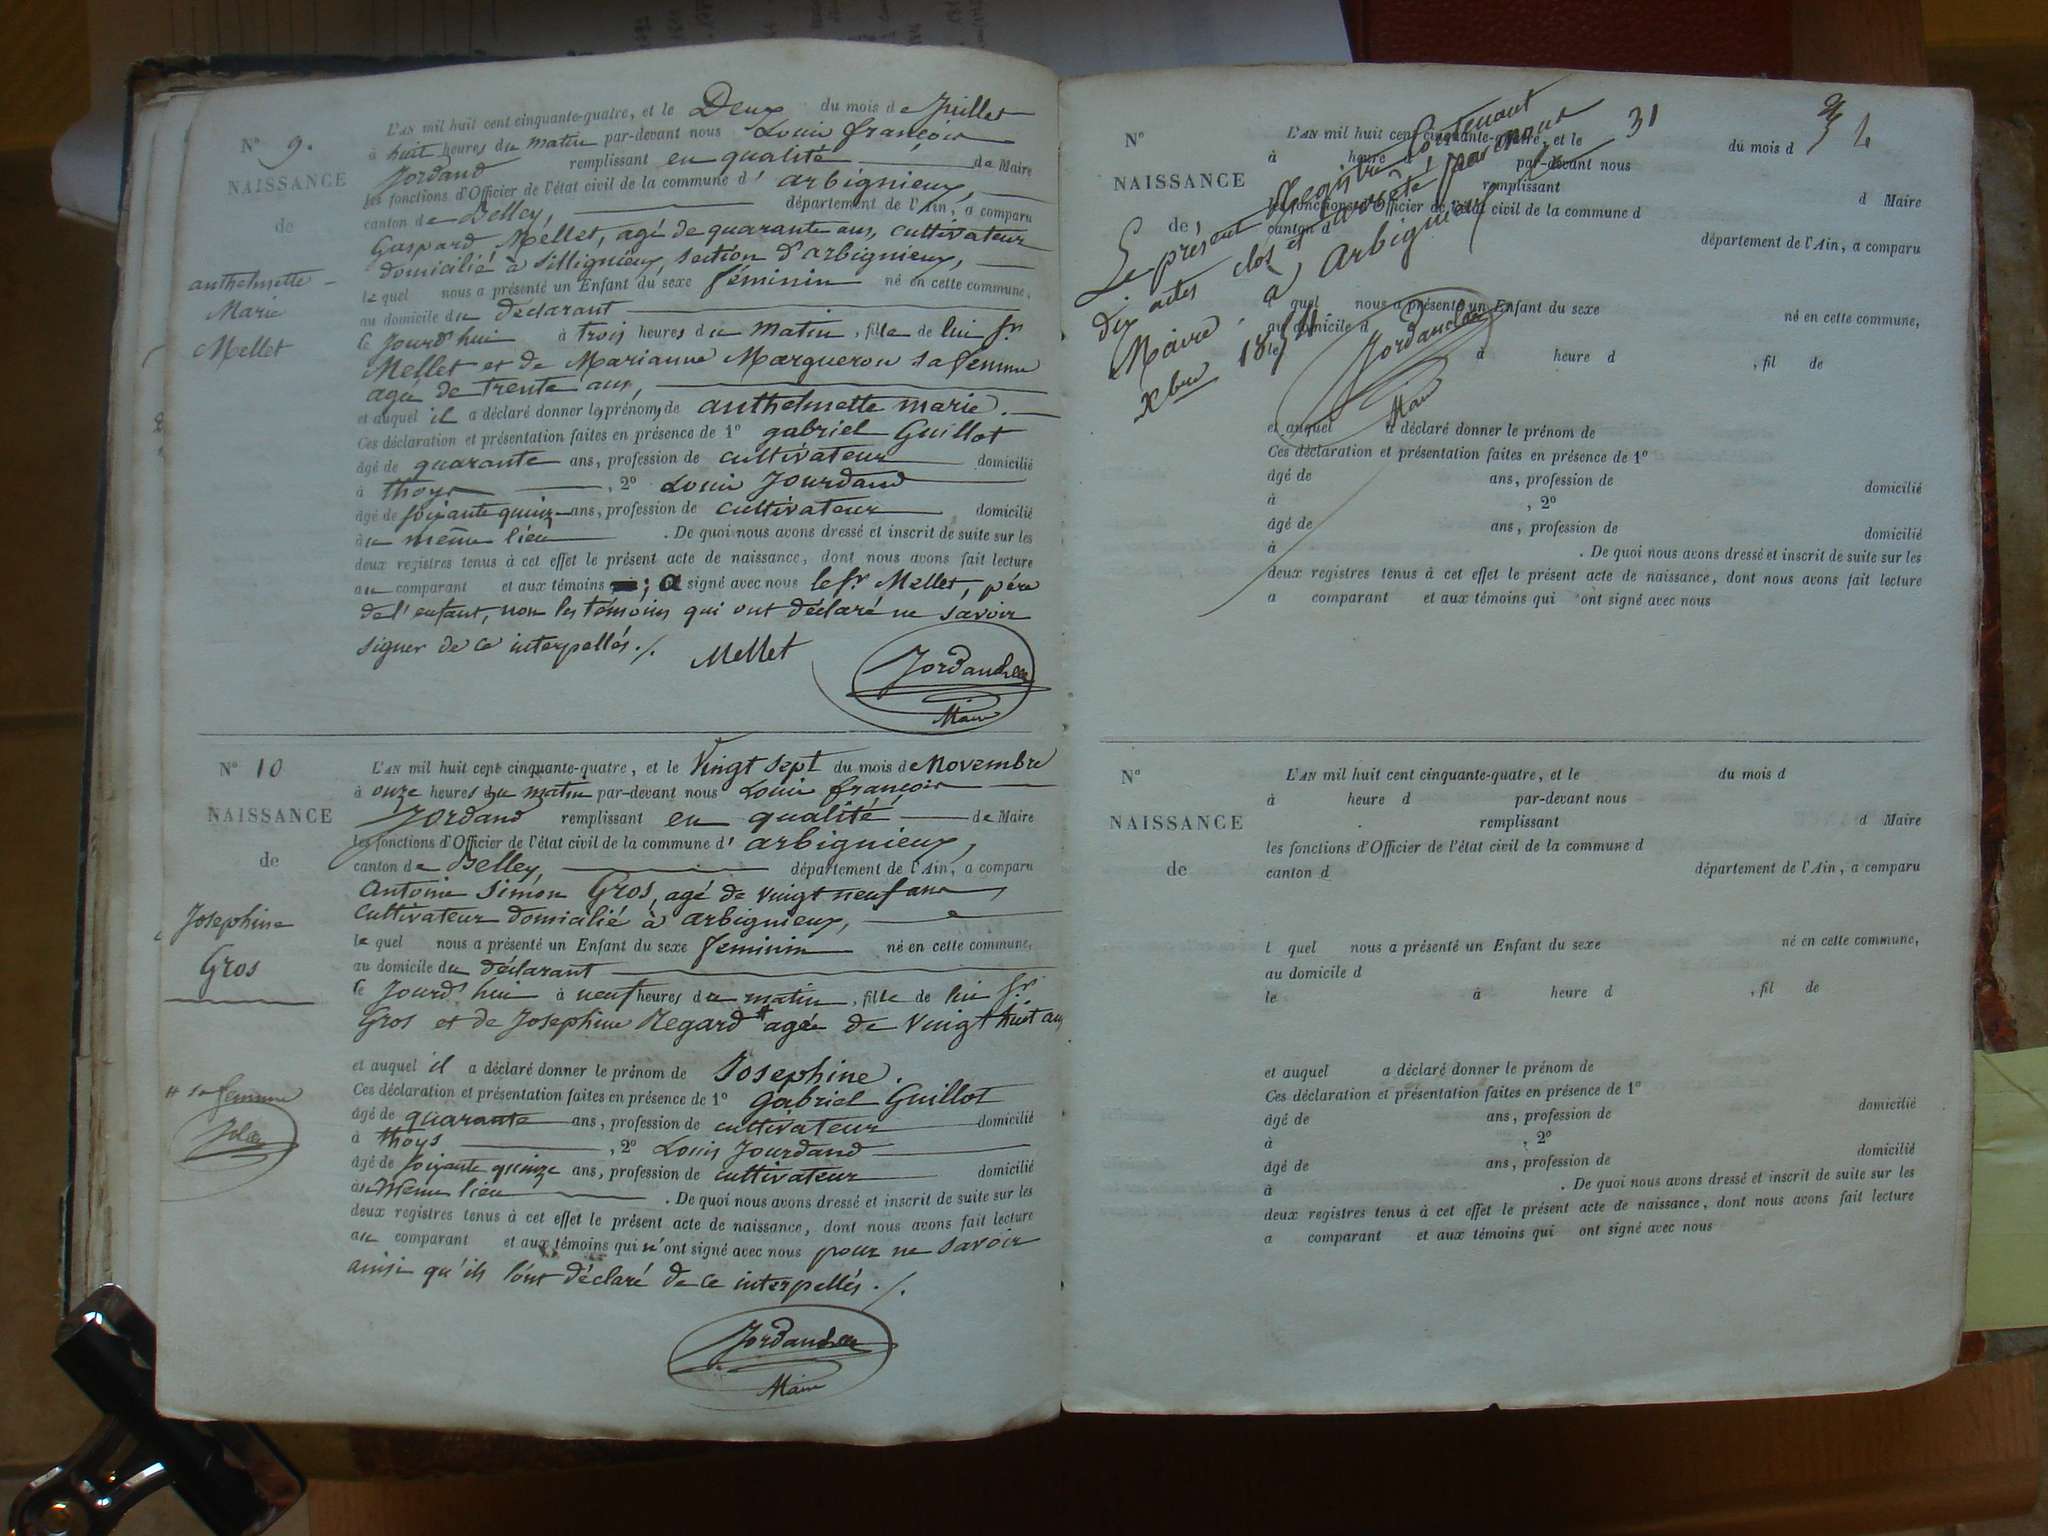 N° 9.
NAISSANCE
de
anthelmette
Marie
Mellet
L'AN mil huit cent cinquante-quatre, et le Deux du mois de Juillet
à huit heures du matin par-devant nous Louis françois
Jordand remplissant en qualité de Maire
les fonctions d'Officier de l'état civil de la commune d' arbignieux,
canton de Belley, département de l'Ain, a comparu
Gaspard Mellet, agé de quarante ans, cultivateur
domicilié à Sillignieux, section d'arbignieux,
le quel nous a présenté un Enfant du sexe féminin né en cette commune,
au domicile du déclarant
le Jourd'hui à trois heures du matin, fille de lui Sr
Mellet et de Marianne Margueron sa femme
agée de trente ans,
et auquel il a déclaré donner les prénoms de anthelmette marie.
Ces déclaration et présentation faites en présence de 1° gabriel Guillot
âgé de quarante ans, profession de cultivateur domicilié
à thoys, 2° Louis Jourdand
âgé de soixante quinze ans, profession de cultivateur domicilié
au même lieu. De quoi nous avons dressé et inscrit de suite sur les
deux registres tenus à cet effet le présent acte de naissance, dont nous avons fait lecture
au comparant et aux témoins; a signé avec nous le Sr Mellet, père
de l'enfant, non les témoins qui ont déclaré ne savoir
signer de ce interpellés ./.
Mellet
Maire
N° 10
NAISSANCE
de
Josephine
Gros
L'AN mil huit cent cinquante-quatre, et le Vingt sept du mois de Novembre
à onze heures du matin par-devant nous Louis françois
Jordand remplissant en qualité de Maire
les fonctions d'Officier de l'état civil de la commune d' arbignieux,
canton de Belley, département de l'Ain, a comparu
Antoine Simon Gros, agé de vingt neuf ans,
cultivateur domicilié à arbignieux,
le quel nous a présenté un Enfant du sexe feminin né en cette commune,
au domicile du déclarant
le Jourd'hui à neuf heures du matin, fille de lui Sr
Gros et de Josephine Regard # agée de vingt huit ans
et auquel il a déclaré donner le prénom de Josephine.
# sa femme
Ces déclaration et présentation faites en présence de 1° Gabriel Guillot
âgé de quarante ans, profession de cultivateur domicilié
à thoys, 2° Louis Jourdand
âgé de soixante quinze ans, profession de cultivateur domicilié
au même lieu. De quoi nous avons dressé et inscrit de suite sur les
deux registres tenus à cet effet le présent acte de naissance, dont nous avons fait lecture
au comparant et aux témoins qui n'ont signé avec nous pour ne savoir
ainsi qu'ils l'ont déclaré de ce interpellés ./.
Maire
Le présent Registre Contenant
dix actes clos et arrêté par nous
Maire à Arbignieux le 31
Xbre 1854
Maire
N°
NAISSANCE
de
L'AN mil huit cent cinquante-quatre, et le du mois d
à heure d par-devant nous
remplissant d Maire
les fonctions d'Officier de l'état civil de la commune d
canton d département de l'Ain, a comparu
l quel nous a présenté un Enfant du sexe né en cette commune,
au domicile d
le à heure d , fil de
et auquel a déclaré donner le prénom de
Ces déclaration et présentation faites en présence de 1°
âgé de ans, profession de domicilié
à , 2°
âgé de ans, profession de domicilié
à . De quoi nous avons dressé et inscrit de suite sur les
deux registres tenus à cet effet le présent acte de naissance, dont nous avons fait lecture
a comparant et aux témoins qui ont signé avec nous
N°
NAISSANCE
de
L'AN mil huit cent cinquante-quatre, et le du mois d
à heure d par-devant nous
remplissant d Maire
les fonctions d'Officier de l'état civil de la commune d
canton d département de l'Ain, a comparu
l quel nous a présenté un Enfant du sexe né en cette commune,
au domicile d
le à heure d , fil de
et auquel a déclaré donner le prénom de
Ces déclaration et présentation faites en présence de 1°
âgé de ans, profession de domicilié
à , 2°
âgé de ans, profession de domicilié
à . De quoi nous avons dressé et inscrit de suite sur les
deux registres tenus à cet effet le présent acte de naissance, dont nous avons fait lecture
a comparant et aux témoins qui ont signé avec nous